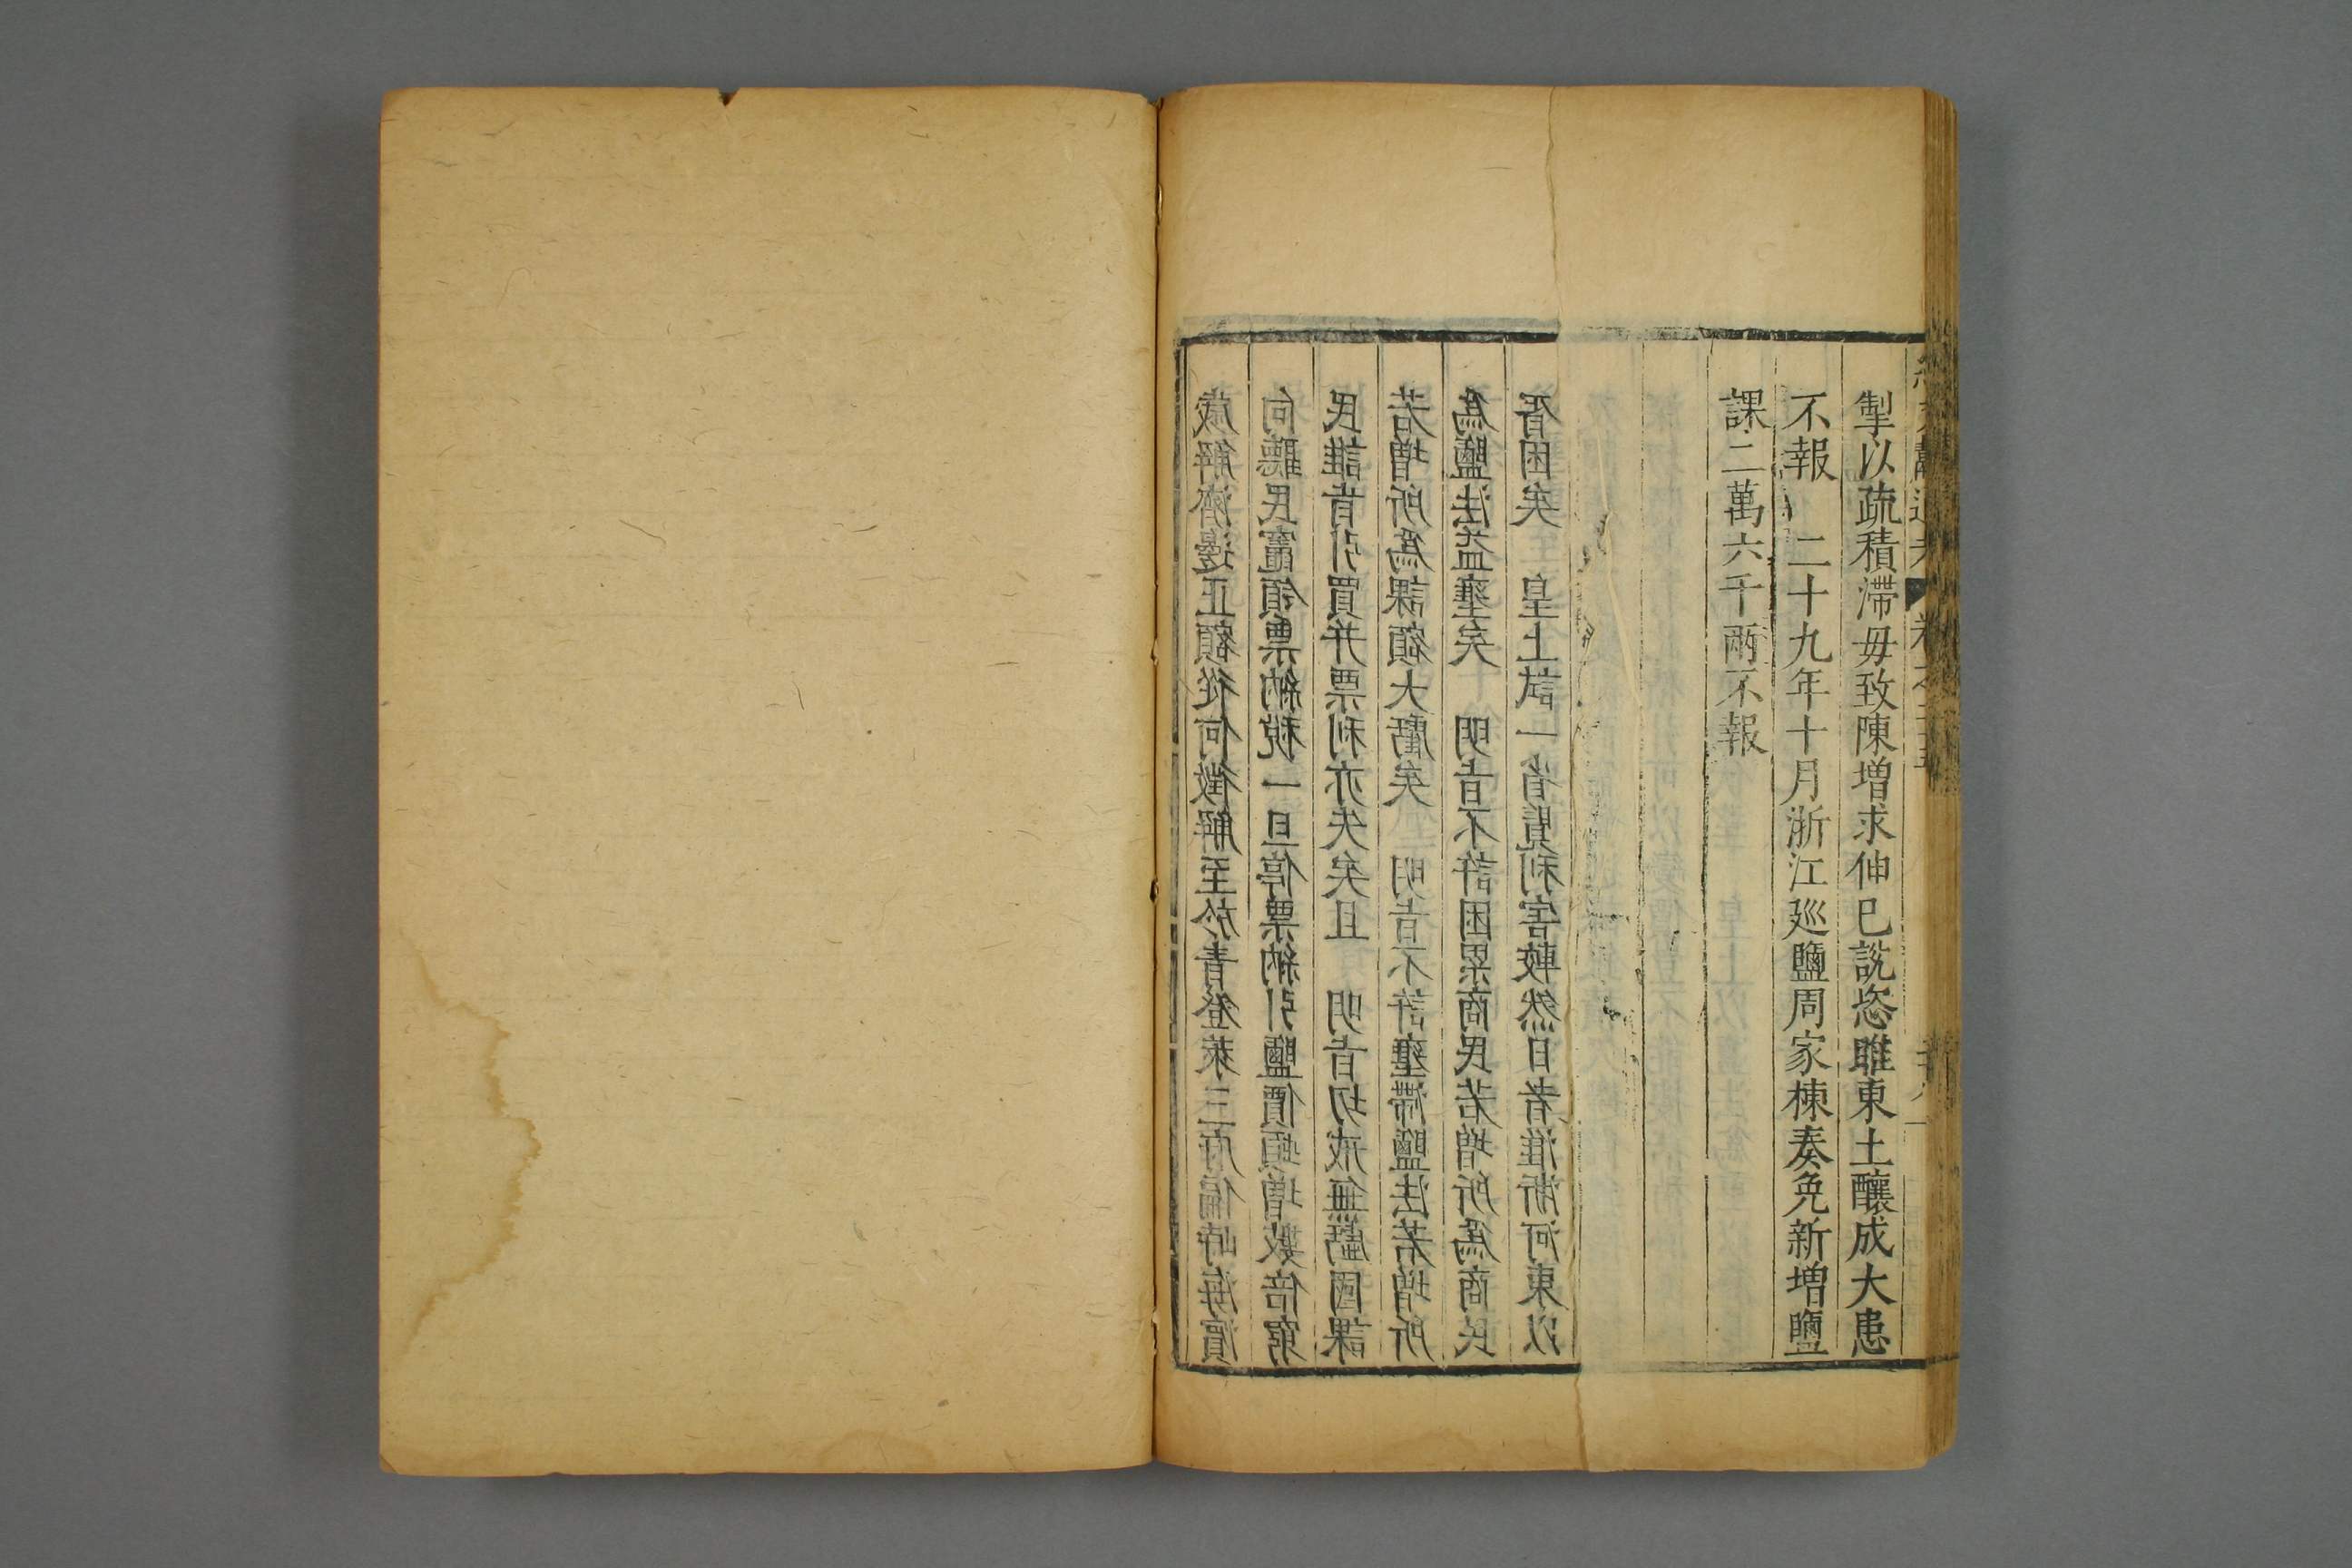 掣以疏積滯毋致陳增求伸已說恣雎東土釀成大患
不報　二十九年十月浙江廵鹽周家棟奏免新增鹽
課二萬六千兩不報
歲解濟邊正額從何徵解至於青登萊三府偏峙海濱
向聽民竈領票納稅一旦停票納引鹽價頓增數倍窮
民誰肯引買并票利亦失矣且　明旨切戒無虧國課
若增所為課額大虧矣　明旨不許壅滯鹽法若增所
為鹽法益壅矣　明旨不許困累商民若增所為商民
胥困矣　皇上試一省覽利害較然日者淮浙河東以